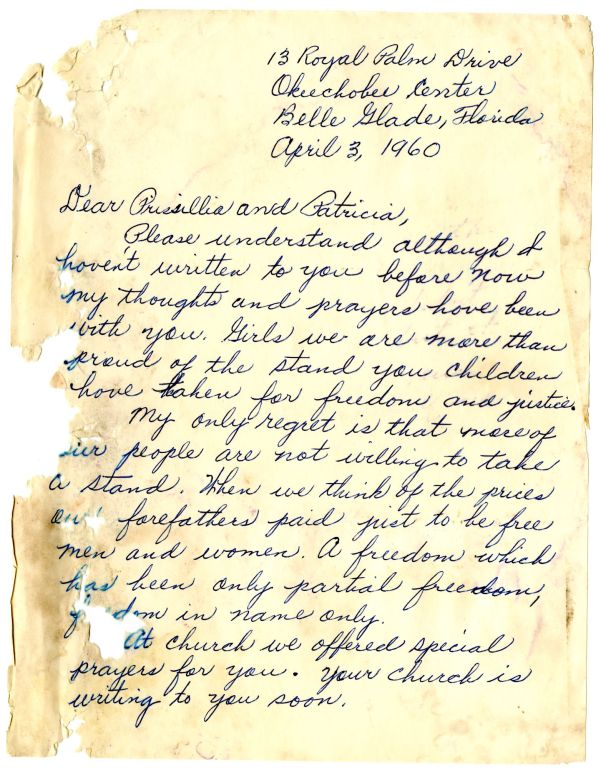 13 Royal Palm Drive
Okeechobee Center
Belle Glade, Florida
April 3, 1960
Dear Prissillia and Patricia,
Please understand although I
haven't written to you before now
my thoughts and prayers have been
with you. Girls we are more than
proud of the stand you children
have taken for freedom and justice.
My only regret is that more of
our people are not willing to take
a stand. When we think of the prices
our forefathers paid just to be free
men and women. A freedom which
has been only partial freedom,
freedom in name only.
At church we offered special
prayers for you. Your church is
writing to you soon.